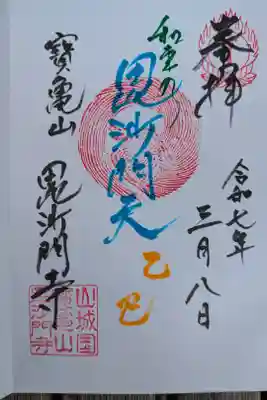 奉拝
令和七年
三月八日
毘沙門天
乙巳
寳亀山
毘沙門寺
山城国
寳亀山
毘沙門寺